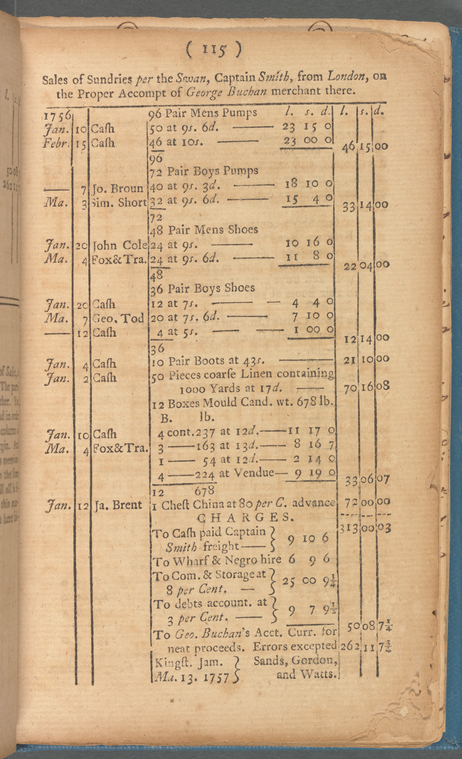 ( 115 )
Sales of Sundries per the Swan, Captain Smith, from London, on
the Proper Accompt of George Buchan merchant there.
1756 96 Pair Mens Pumps l. s. d. l. s. d.
Jan. 10 Cash 50 at 9s. 6d. — 23 15 0
Febr. 15 Cash 46 at 10s. — 23 00 0 46 15 00
96
72 Pair Boys Pumps
— 7 Jo. Broun 40 at 9s. 3d. — 18 10 0
Ma. 3 Sim. Short 32 at 9s. 6d. — 15 4 0 33 14 00
72
48 Pair Mens Shoes
Jan. 20 John Cole 24 at 9s. — 10 16 0
Ma. 4 Fox&Tra. 24 at 9s. 6d. — 11 8 0
22 04 00
48
36 Pair Boys Shoes
Jan. 20 Cash 12 at 7s. — — 4 4 0
Ma. 7 Geo. Tod 20 at 7s. 6d. — 7 10 0
— 12 Cash 4 at 5s. — — 1 00 0
12 14 00
36
Jan. 4 Cash 10 Pair Boots at 43s. — 21 10 00
Jan. 2 Cash 50 Pieces coarse Linen containing
1000 Yards at 17d. — 70 16 08
12 Boxes Mould Cand. wt. 678 lb.
B. lb.
Jan. 10 Cash 4 cont. 237 at 12d. — 11 17 0
Ma. 4 Fox&Tra. 3 — 163 at 13d. — 8 16 7
1 — 54 at 12d. — 2 14 0
4 — 224 at Vendue — 9 19 0
33 06 07
12 678
Jan. 12 Ja. Brent 1 Chest China at 80 per C. advance 72 00 00
CHARGES.
313 00 03
To Cash paid Captain
Smith freight — } 9 10 6
To Wharf & Negro hire 6 9 6
To Com. & Storage at
8 per Cent. — } 25 00 9¼
To debts account. at
3 per Cent. — } 9 7 9½
50 08 7¼
To Geo. Buchan's Acct. Curr. for
neat proceeds. Errors excepted 262 11 7¾
Kingst. Jam. } Sands, Gordon,
Ma. 13. 1757 } and Watts.